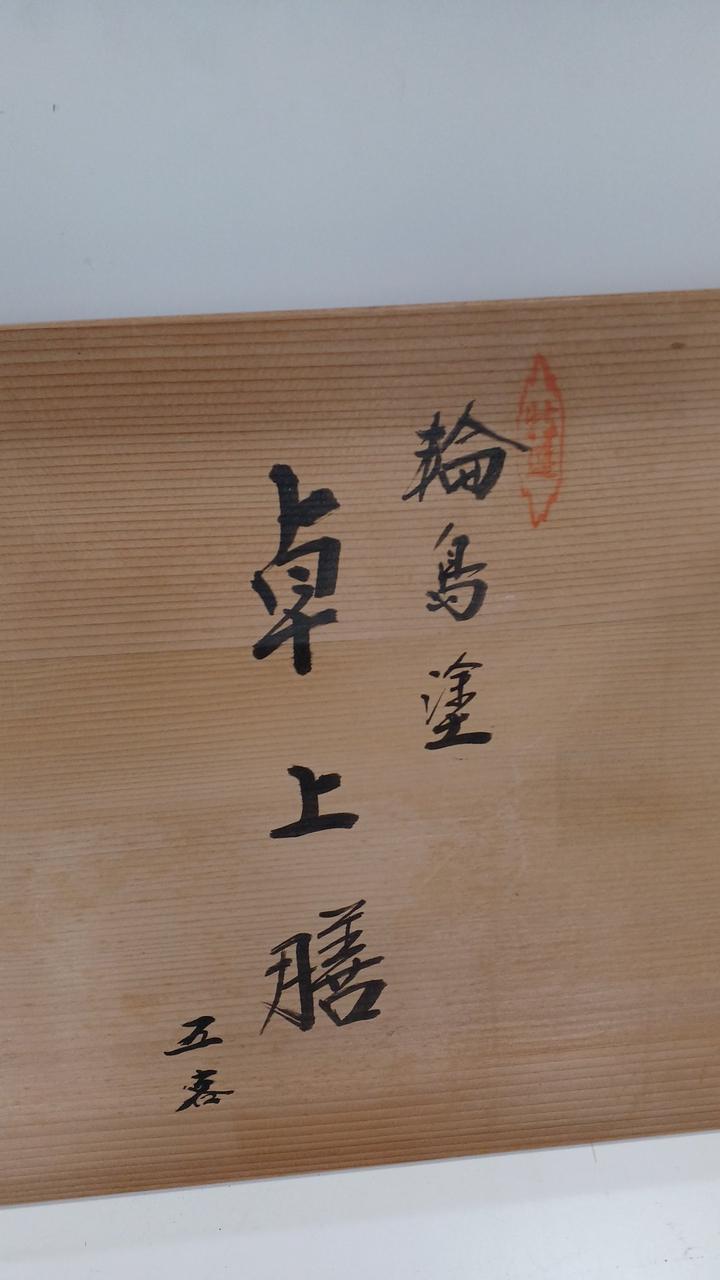 特選
輪島塗
卓上膳
五客